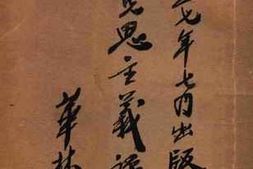 七年七月出版
克思主義
華